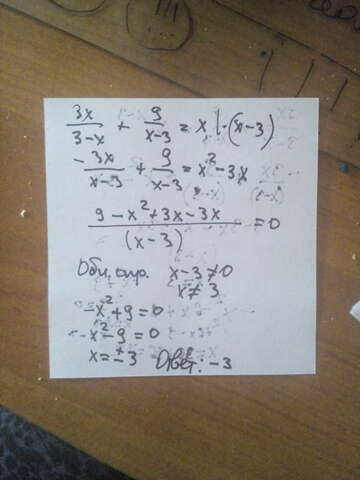 3x/(3-x) + 9/(x-3) = x |·(x-3)
-3x/(x-3) + 9/(x-3) = x²-3x
(9-x²+3x-3x)/(x-3) = 0
x-3≠0
x≠3
-x²+9=0
-x²-9=0
x=±3 Ответ: -3